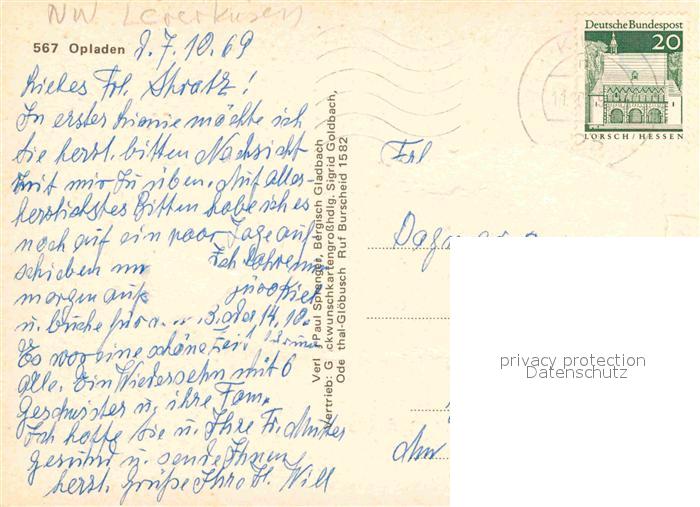 NW Leverkusen
567 Opladen d. 7. 10. 69
Liebes Frl. Shratz!
In erster Linie möchte ich
Sie herzl. bitten Nachsicht
mit mir zu üben. Auf aller-
herzlichstes Bitten habe ich es
noch auf ein paar Tage auf
schieben
morgen
u. buche 14. 10.
Es war eine schöne Zeit
alle. Ein Wiedersehn mit 6
Geschwister u. ihre Fam.
Ich hoffe Sie u. Ihre Fr. Mutter
gesund u. sende Ihnen
herzl. Grüße Ihre H. Will
Verl Paul Sprenger, Bergisch Gladbach
Vertrieb: G ckwunschkartengroßhdlg. Sigrid Goldbach,
Ode thal-Glöbusch Ruf Burscheid 1582
Deutsche Bundespost
20
LORSCH/HESSEN
Frl
privacy protection
Datenschutz